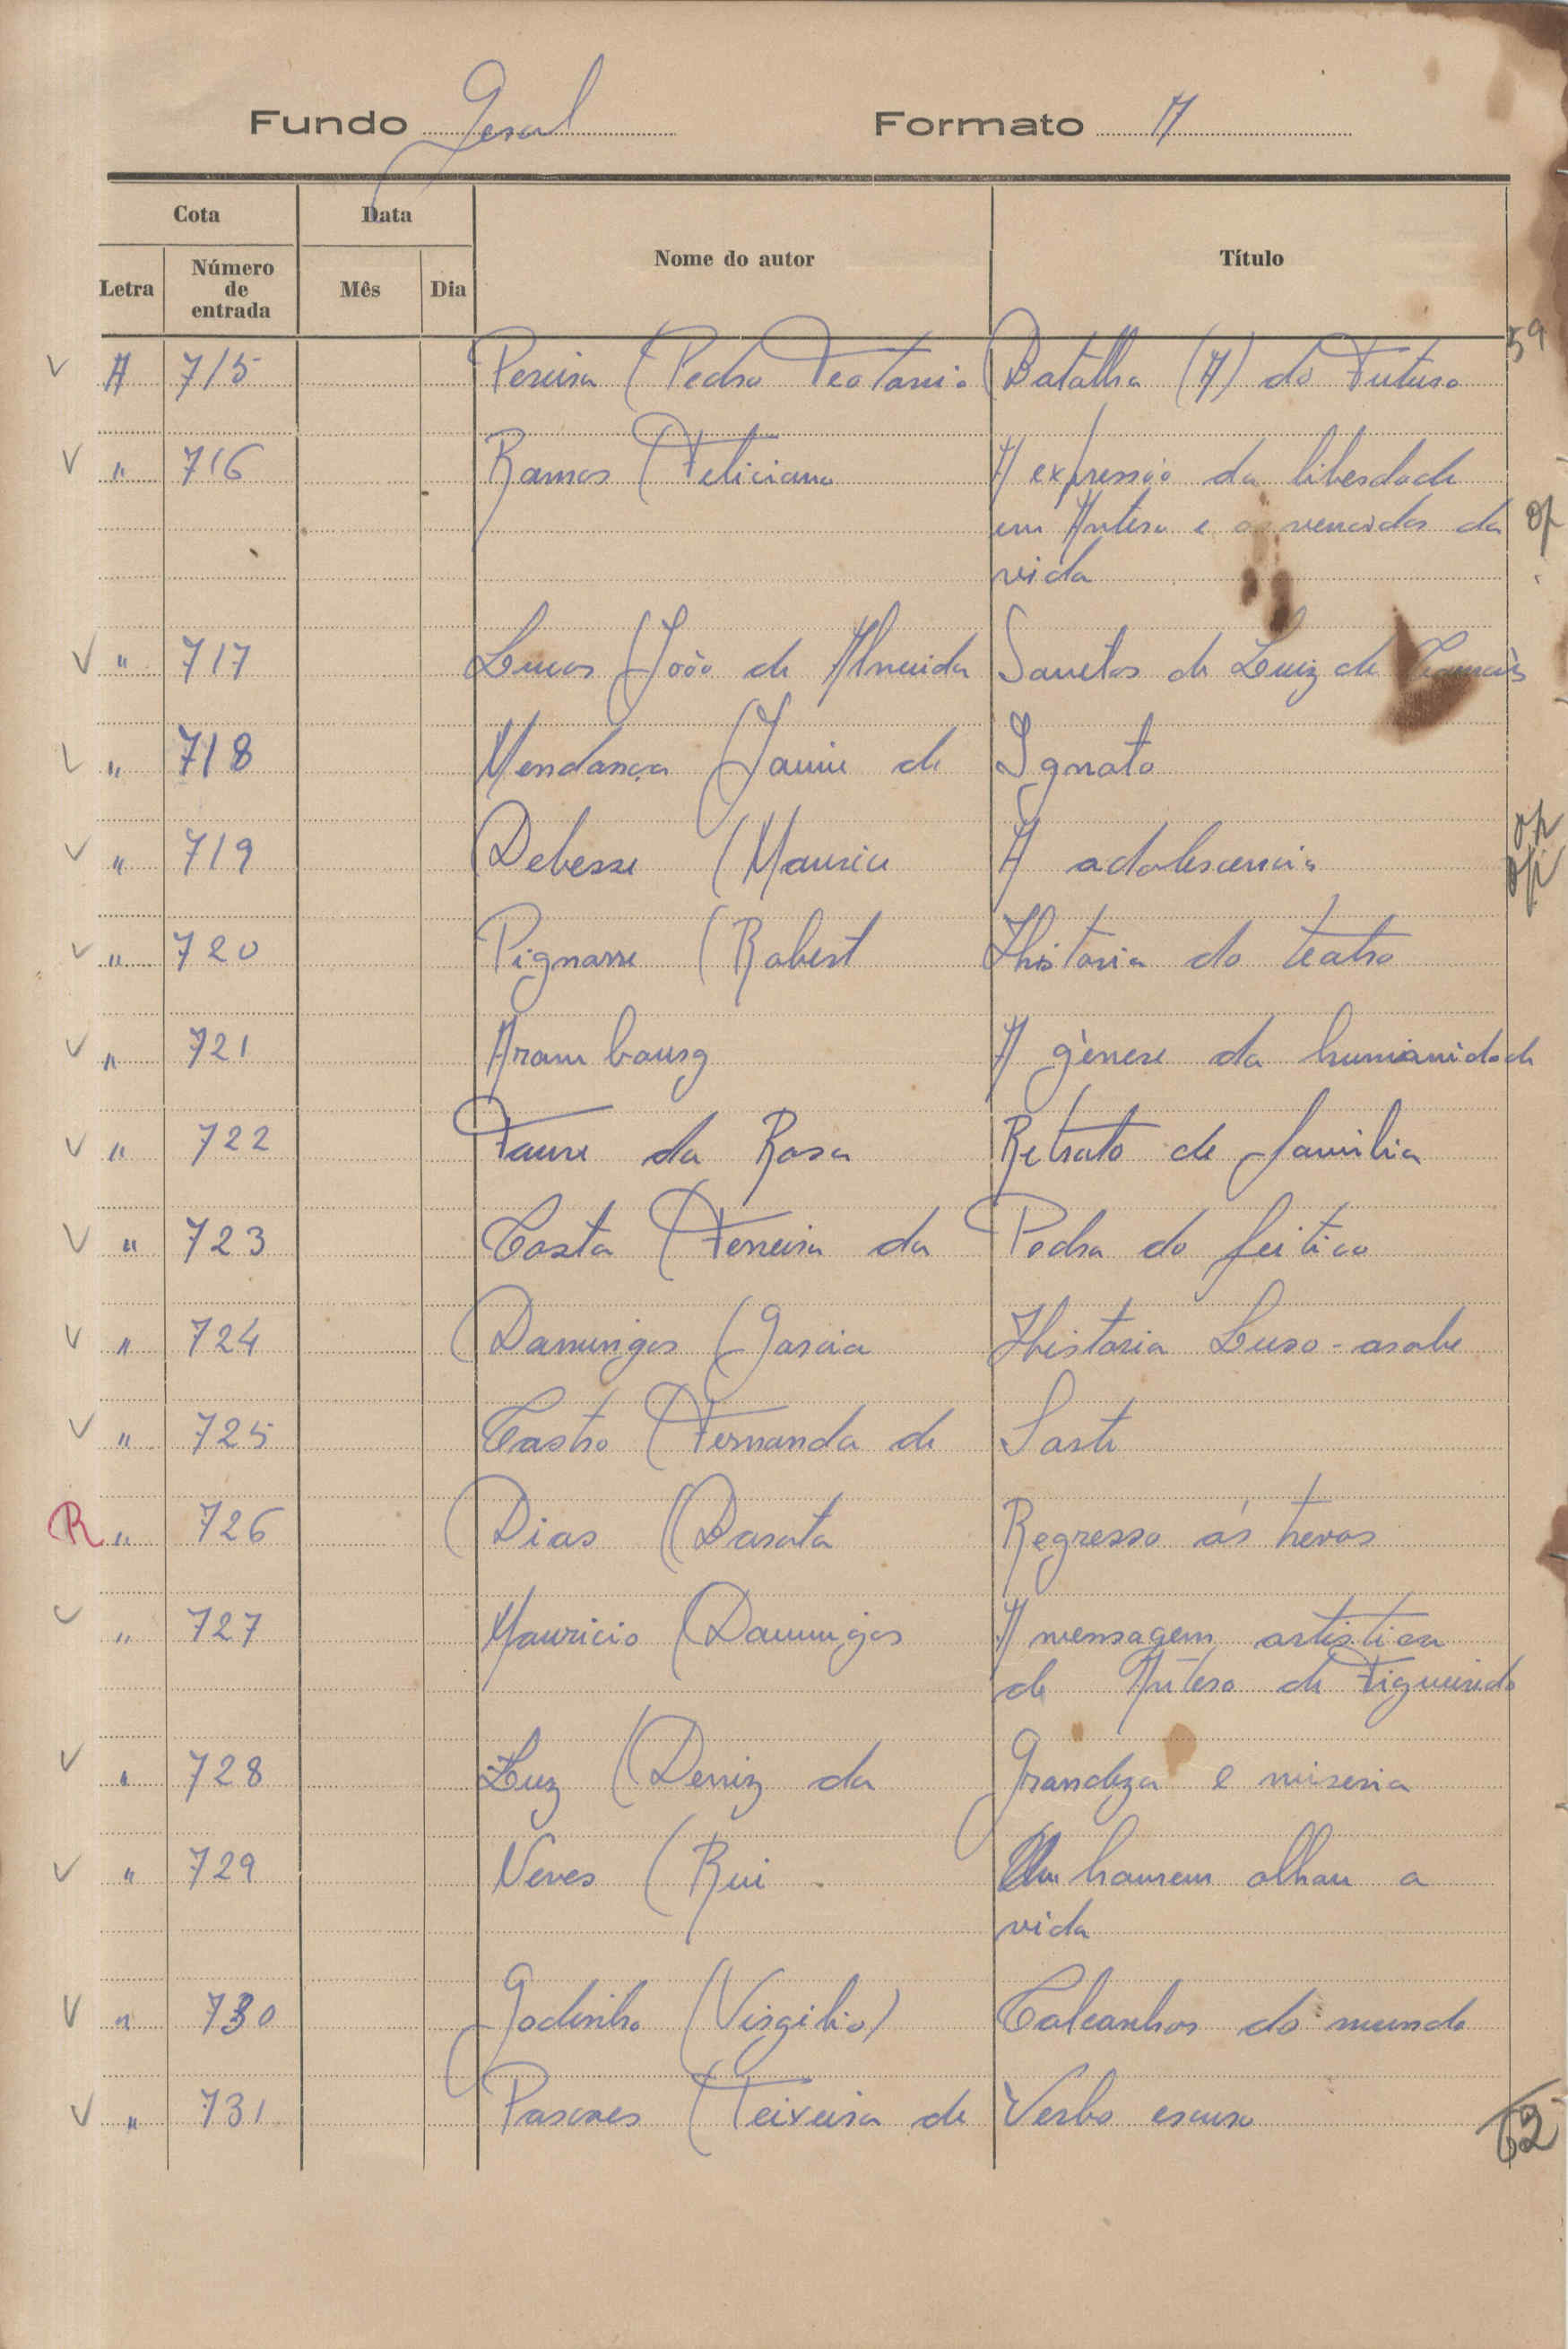 Fundo Geral Formato A
Cota Data Nome do autor Título
Letra Número de entrada Mês Dia
59
V A 715 Pereira (Pedro Teotonio Batalha (A) do Futuro
V " 716 Ramos (Feliciano A expressão da liberdade
em Antero e os vencidos da op
vida
V " 717 Lucas (João de Almeida Sonetos de Luiz de Camões
V " 718 Mendonça (Jaime de Ignoto
op
V " 719 Debesse (Maurice A adolescencia op
V " 720 Pignarre (Robert Historia do teatro
V " 721 Arambourg A gènese da humanidade
V " 722 Faure da Rosa Retrato de familia
V " 723 Costa (Ferreira da Pedra do feitico
V " 724 Domingos (Garcia Historia Luso-arabe
V " 725 Castro (Fernanda de Sorte
R " 726 Dias (Saral Regresso ás trevas
V " 727 Mauricio (Domingos A mensagem artistica
de Antero de Figueiredo
V " 728 Luz (Deniz da Grandeza e miseria
V " 729 Neves (Rui Um homem olhou a
vida
V " 730 Godinho (Virgilio) Calcanhar do mundo
V " 731 Pascoaes (Teixeira de Verbo escuro
62